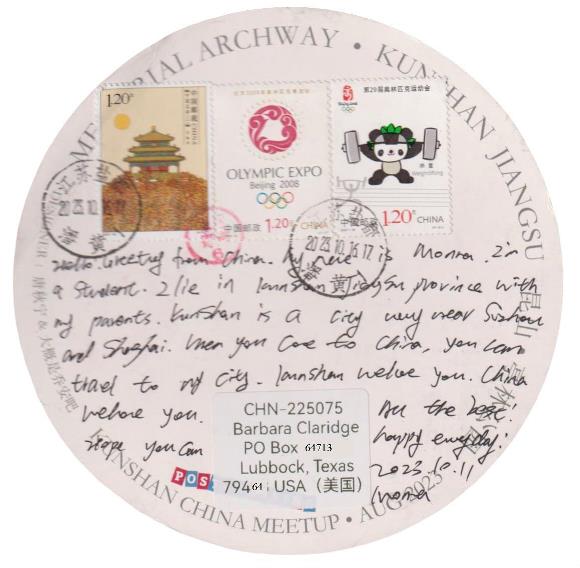 MEMORIAL ARCHWAY • KUNSHAN JIANGSU
1.20元
中国邮政 CHINA
北京2008年奥林匹克博览会
OLYMPIC EXPO
Beijing 2008
中国邮政 1.20元 CHINA
第29届奥林匹克运动会
Beijing 2008
举重
Weightlifting
中国邮政 1.20元 CHINA
江苏
2023.10.16.17
江苏
2023.10.16.17
Hello. Greeting from China. My name is Monra. I'm
a student. I lie in kunshan Jiangsu province with
my parents. Kunshan is a city very near Suzhou
and Shaghai. When you come to China, you can
travel to my city. kunshan welove you. China
welove you. All the best!
Hope you can happy everyday!
2023.10.11
Monra
CHN-225075
Barbara Claridge
PO Box 64713
Lubbock, Texas
79464 USA（美国）
POS
KUNSHAN CHINA MEETUP • AUG 2023
昆山